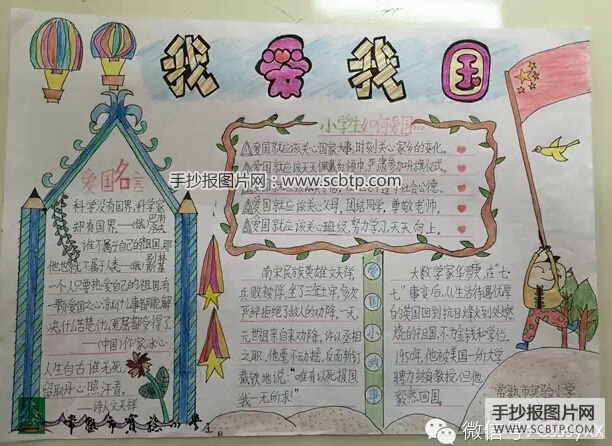 我爱我国
爱国名言
科学没有国界,科学家
却有国界。
谁不属于自己的祖国,那
他也就不属于人类。
一个人只要热爱自己的祖国,有
一颗爱国之心,就什么事都能解
决,什么苦楚,什么冤屈都受得了.
(中国)作家冰心
人生自古谁无死,
留取丹心照汗青。
诗人文天祥
小学生如何爱国
爱国就应该关心国家大事,时刻关心家乡的变化。
爱国就应该天天佩戴红领巾,严肃参加升旗仪式。
社会公德。
爱国就应该关心父母,团结同学,尊敬老师。
爱国就应该关心班级,努力学习,天天向上。
手抄报图片网:www.scbtp.com
南宋民族英雄文天祥
兵败被俘,坐了三年土牢,多次
严辞拒绝了敌人的劝降。一天,
元世祖亲自来劝降,许以丞相
之职,他毫不动摇,反而斩钉
截铁地说:"唯有以死报国,
我一无所求!"
爱国小故事
大数学家华罗庚,在"七·
七"事变后,从生活待遇优厚
的美国回到抗日烽火到处燃
烧的祖国,不为金钱和学位,
1950年,他被美国一所大学
聘为终身教授,但他
毅然回国。
常熟市实验小学
常熟市实验小学
微信号:csssyxx
手抄报图片网
WWW.SCBTP.COM